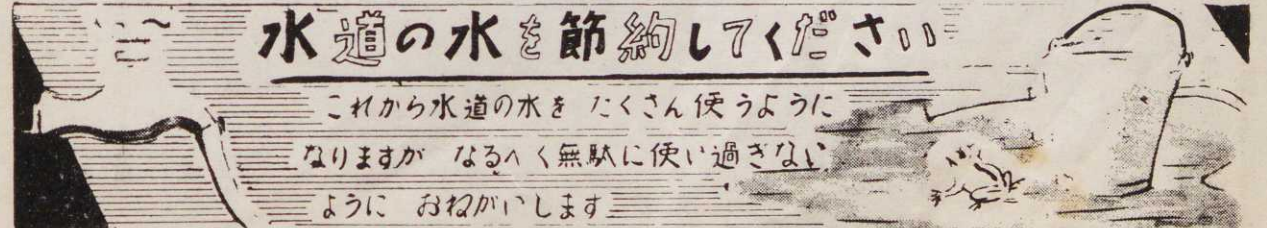 水道の水を節約してください
これから水道の水を たくさん使うように
なりますが なるべく無駄に使い過ぎない
ように おねがいします